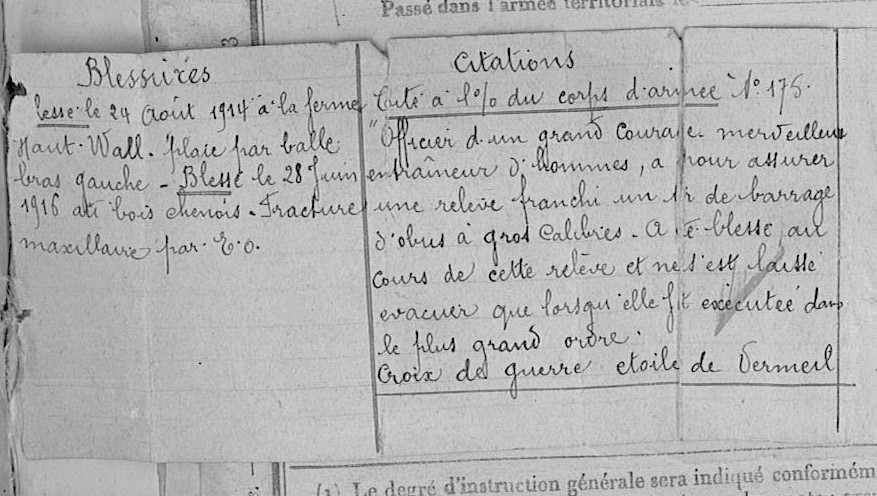 Passé dans l'armée territoriale le
Blessures
lessé le 24 Août 1914 à la ferme
Haut-Wall. plaie par balle
bras gauche - Blessé le 28 Juin
1916 au bois chenois. Fracture
maxillaire par. E.O.
Citations
Cité à l'o/o du corps d'armée N° 175.
"Officier d'un grand courage merveilleux
entraîneur d'hommes, a pour assurer
une relève franchi un tir de barrage
d'obus à gros calibres. A été blessé au
cours de cette relève et ne s'est laissé
evacuer que lorsqu'elle fut exécutée dans
le plus grand ordre.
Croix de guerre etoile de Vermeil
(1) Le degré d'instruction générale sera indiqué conformém